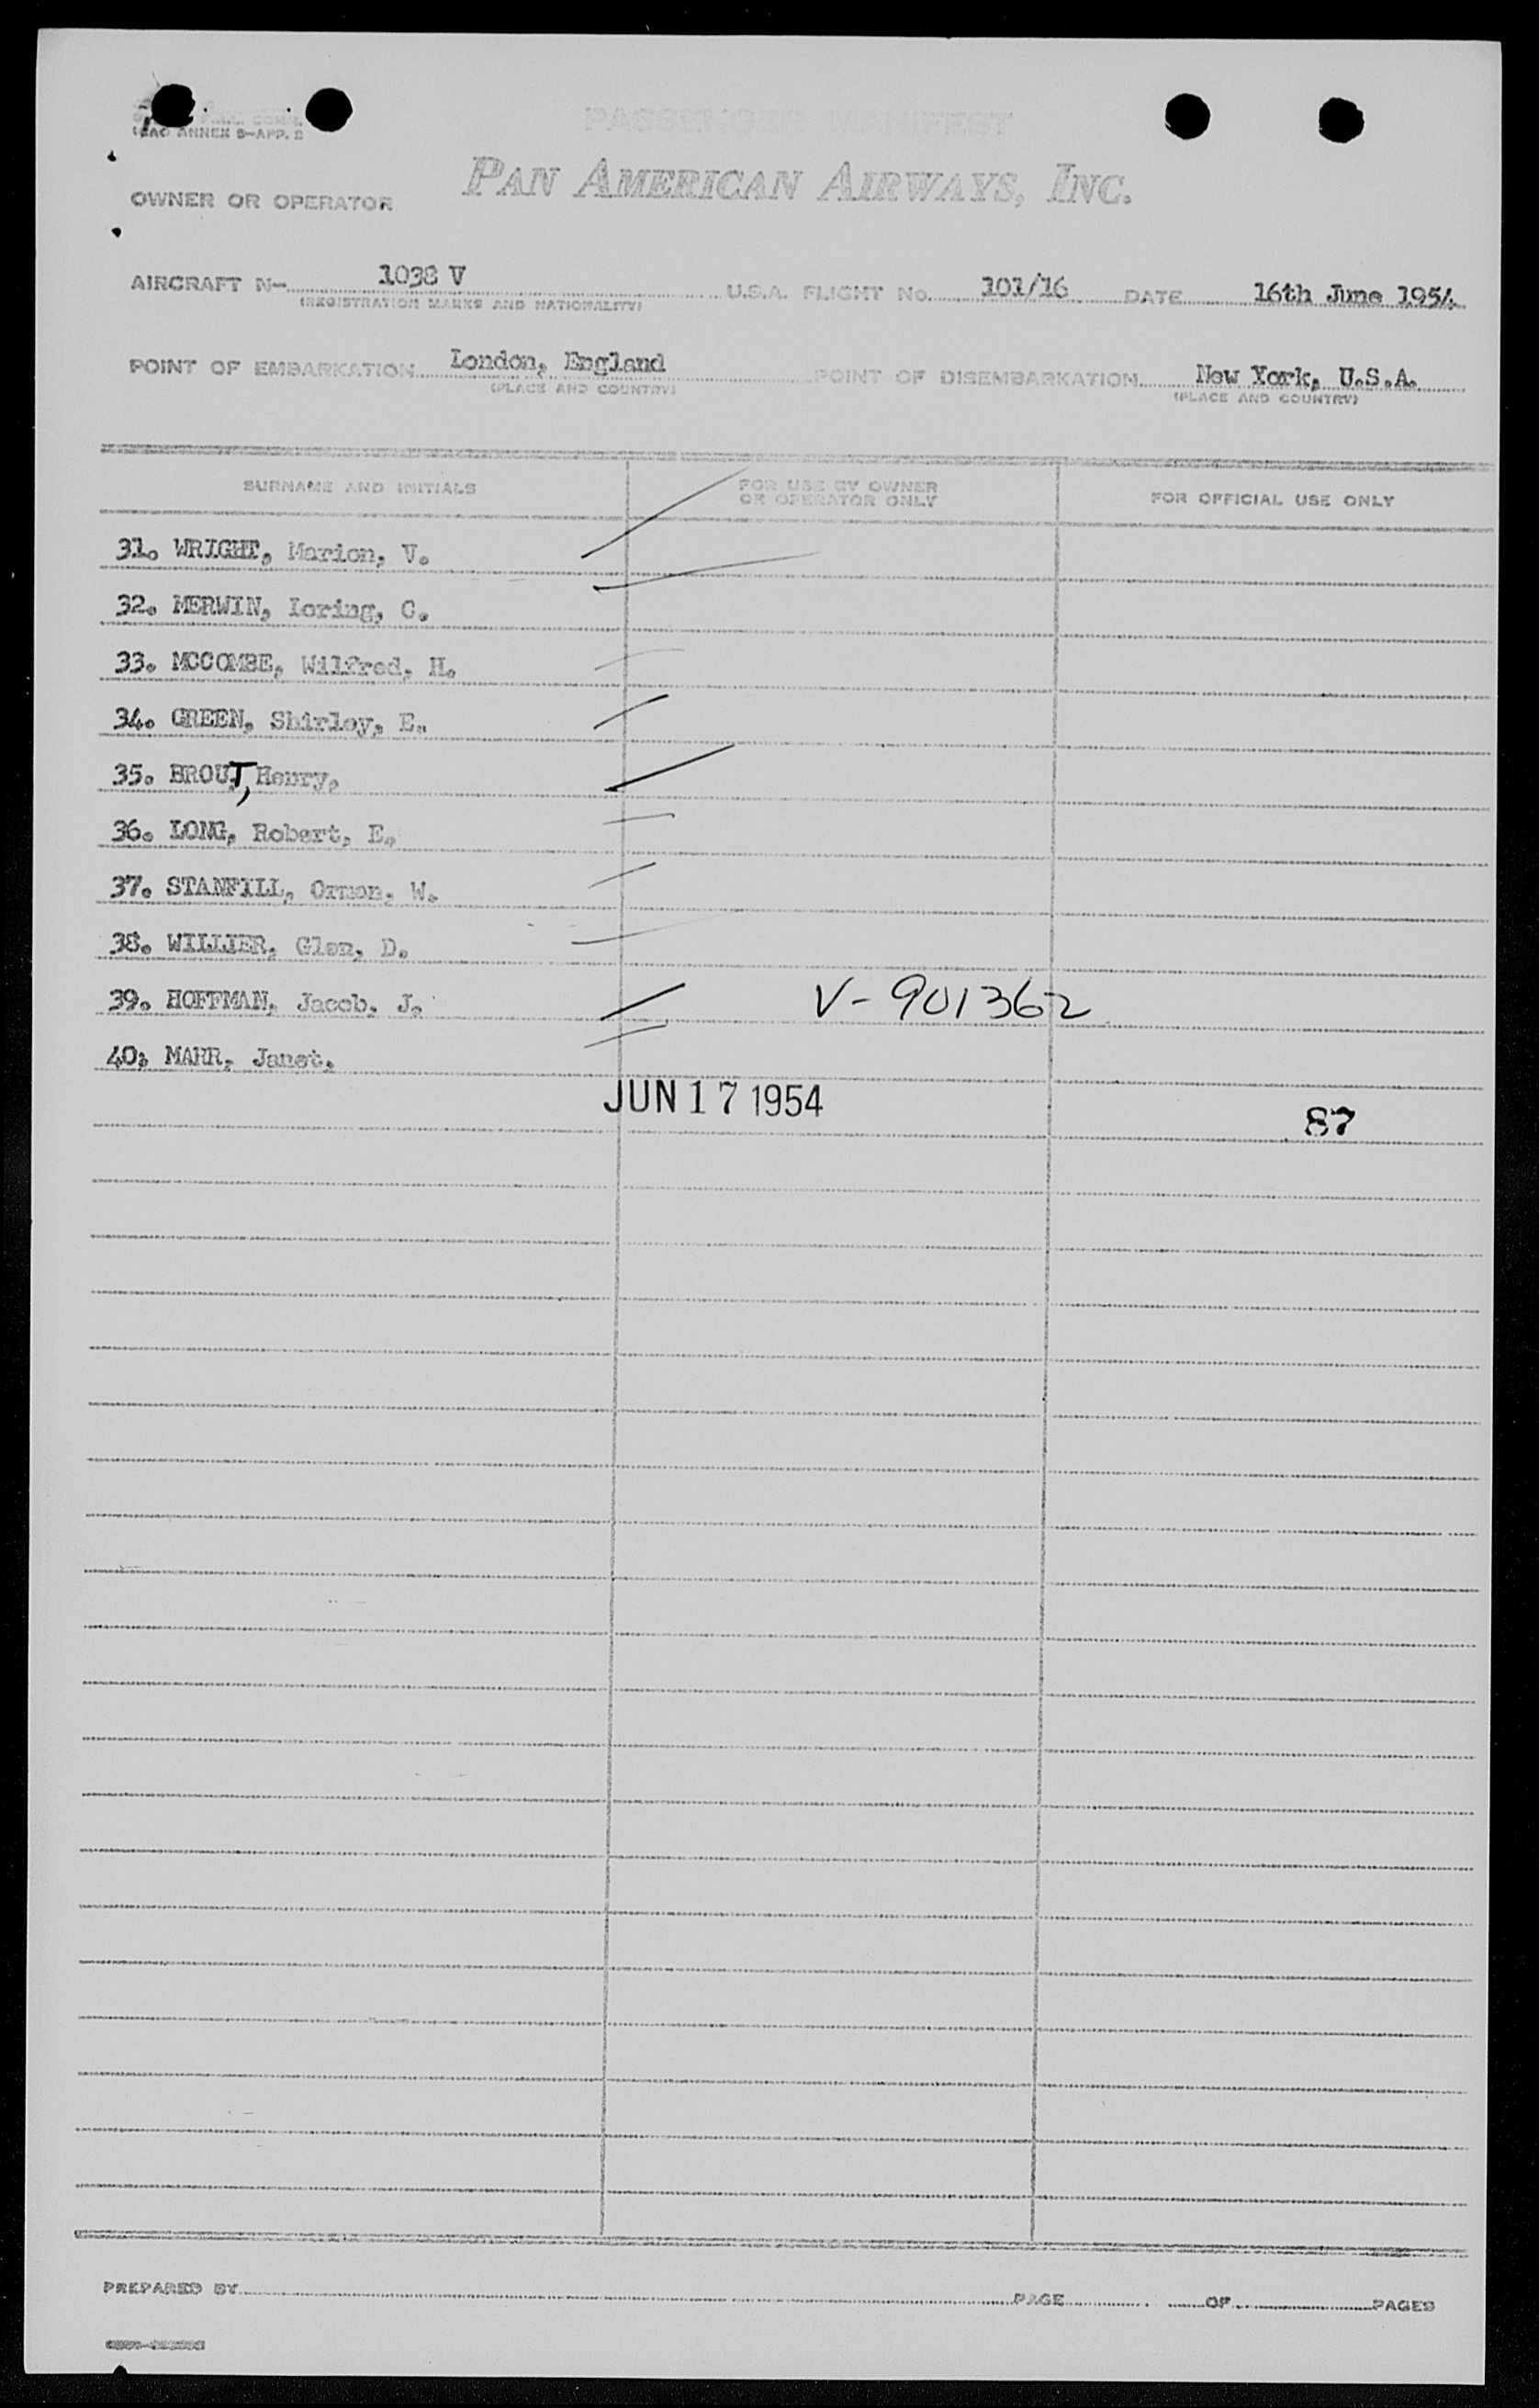 ICAO ANNEX 9-APP. 2
PASSENGER MANIFEST
OWNER OR OPERATOR PAN AMERICAN AIRWAYS, INC.
AIRCRAFT N- 1038 V U.S.A. FLIGHT NO. 101/16 DATE 16th June 1954
(REGISTRATION MARKS AND NATIONALITY)
POINT OF EMBARKATION London, England POINT OF DISEMBARKATION New York, U.S.A.
(PLACE AND COUNTRY) (PLACE AND COUNTRY)
SURNAME AND INITIALS FOR USE BY OWNER OR OPERATOR ONLY FOR OFFICIAL USE ONLY
31. WRIGHT, Marion, V.
32. MERWIN, Loring, C.
33. MCCOMBE, Wilfred, H.
34. GREEN, Shirley, E.
35. BROUT, Henry,
36. LONG, Robert, E.
37. STANFILL, Orman, W.
38. WILLIER, Glen, D.
39. HOFFMAN, Jacob, J. V-901362
40. MARR, Janet.
JUN 17 1954
87
PREPARED BY PAGE OF PAGES